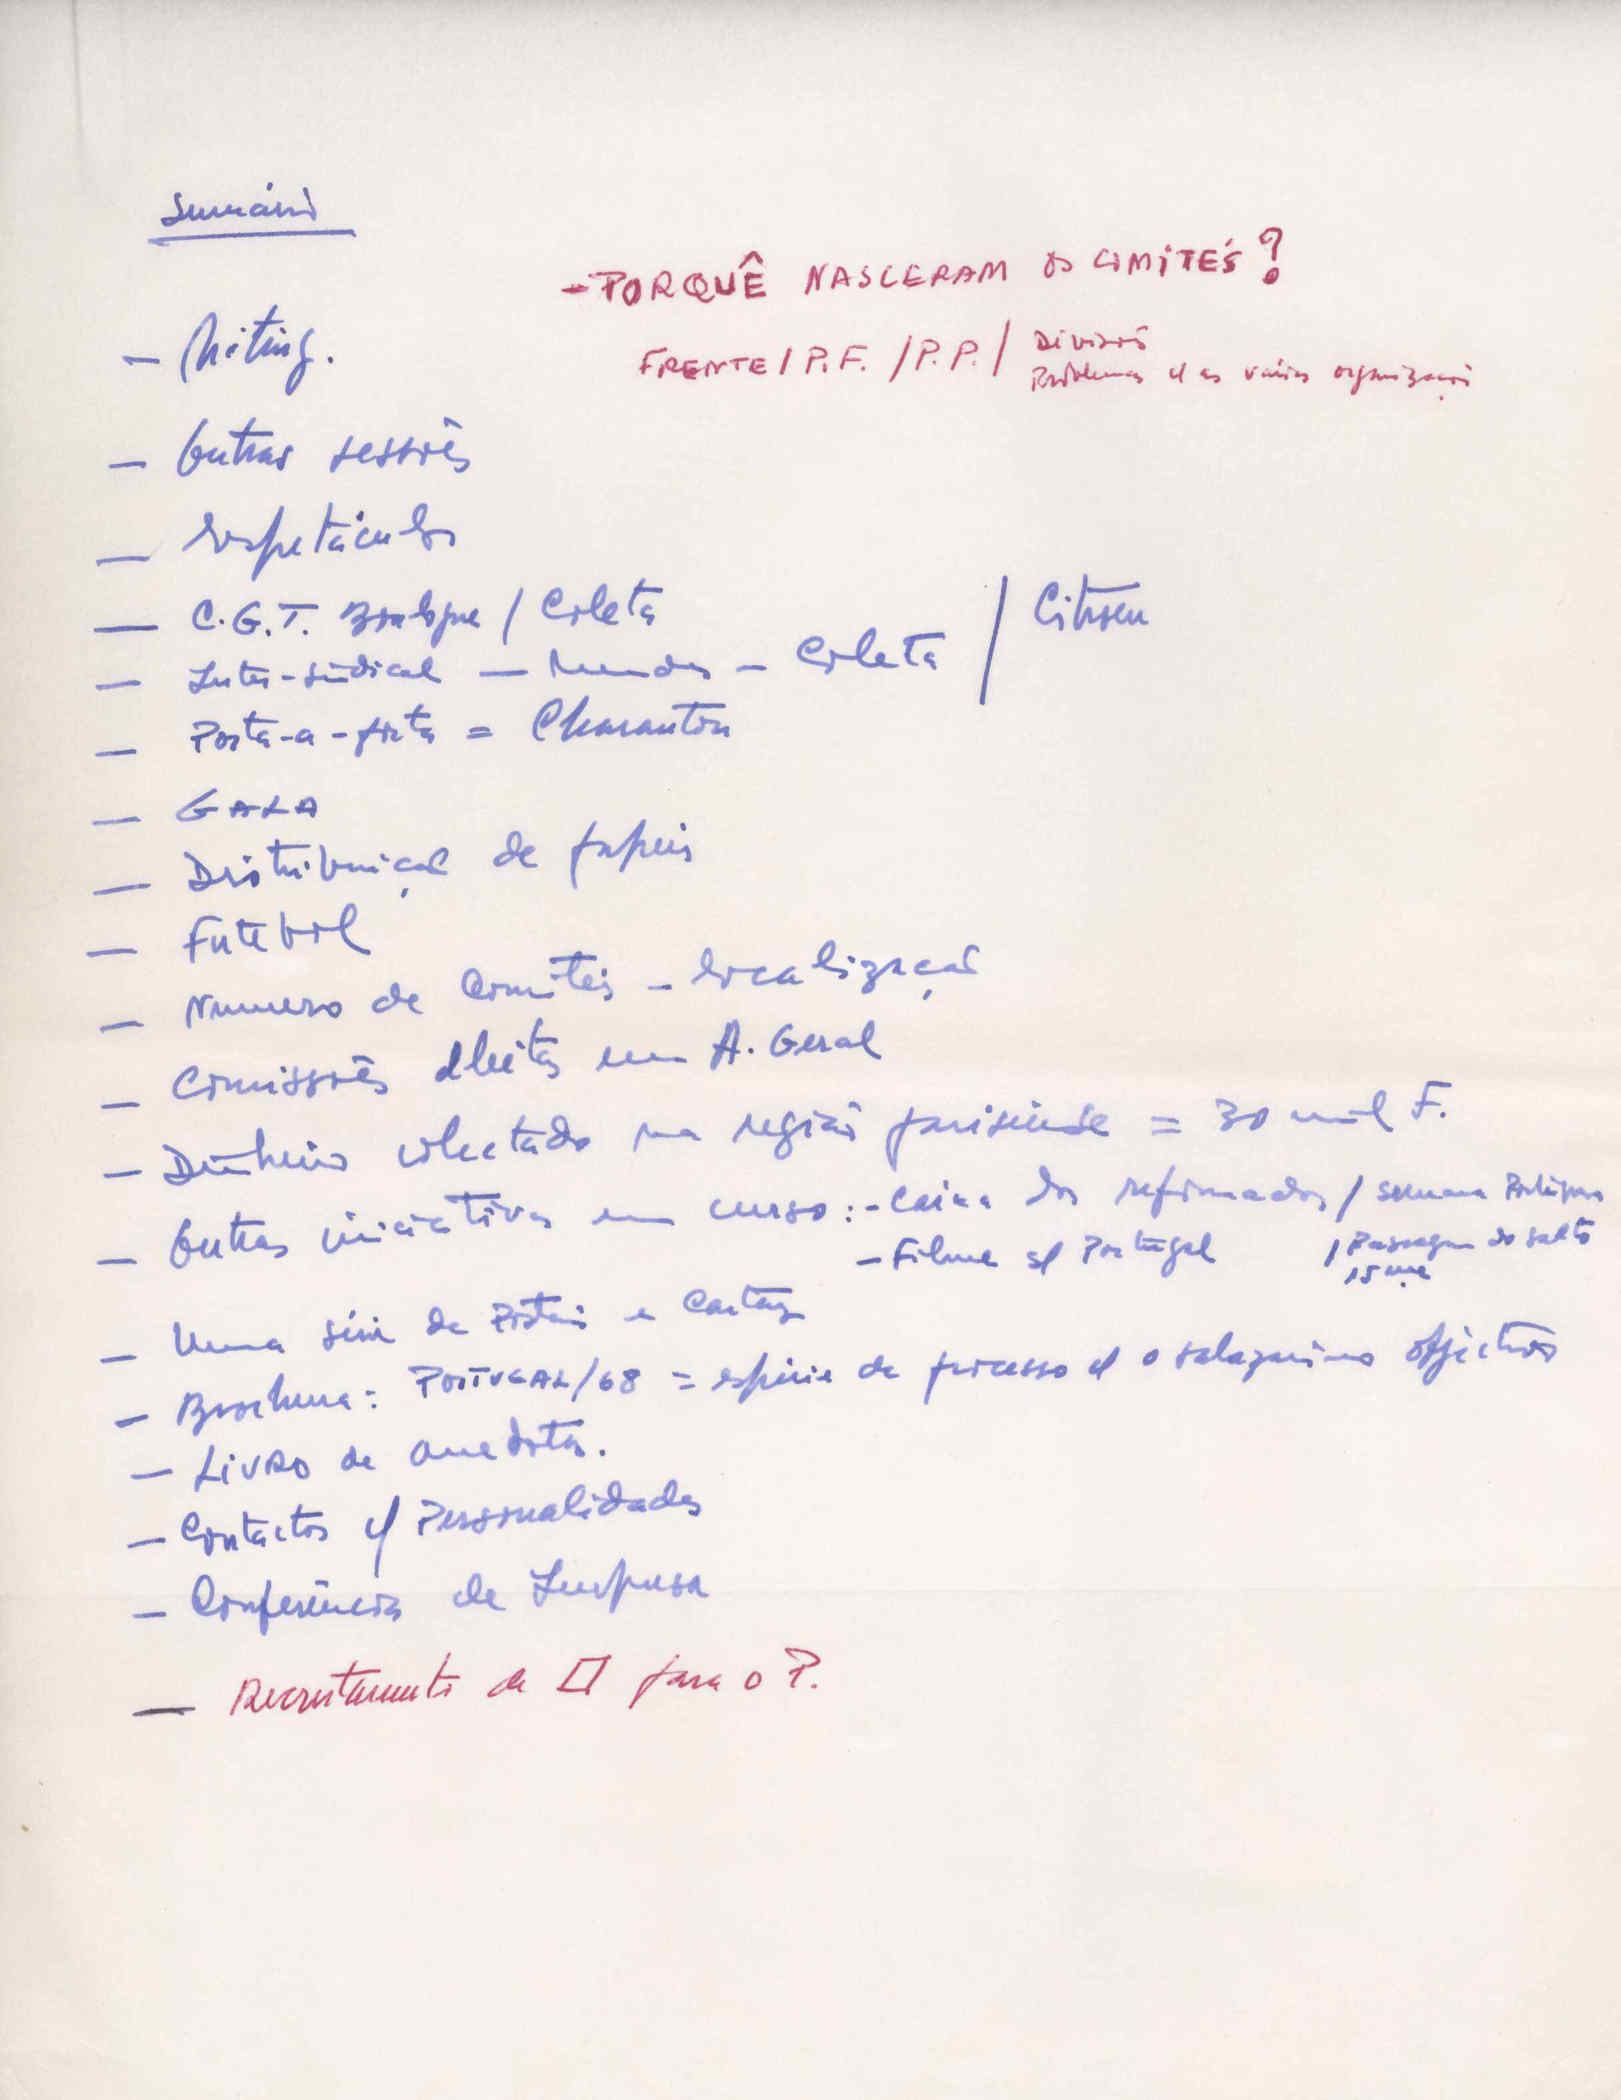 Sumário
- PORQUÊ NASCERAM OS COMITÉS?
FRENTE / P.F. / P.P. / Divisões
Problemas c/ as várias organizações
- Miting.
- Outras sessões
- Espetáculos
- C.G.T. Boulogne / Coleta
- Inter-sindical - - Coleta / Citroen
- Porta-a-porta = Charanton
- GALA
- Distribuiçaõ de papeis
- Futebol
- Numero de Comités - localizaçaõ
- Comissões eleitas em A. Geral
- Dinheiro colectado na região parisiense = 30 mil F.
- Outras iniciativas em curso: - Caixa dos reformados / Semana Portuguesa
- Filme s/ Portugal / Passagem do salto
15 me
- Uma série de Postais e Cartaz
- Brochura: PORTUGAL/68 = espécie de processo c/ o salazarismo objectivos
- LIVRO de anedotas.
- Contactos c/ Personalidades
- Conferências de Imprensa
- Recrutamento de □ para o P.